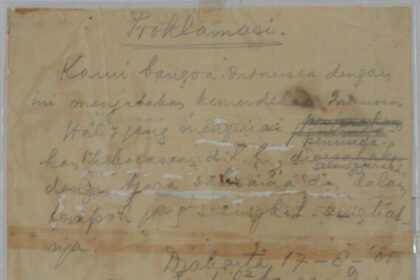 Proklamasi.
Kami bangsa Indonesia dengan
ini menjatakan kemerdekaan Indonesia.
Hal² jang mengenai
peminda-
han kekoeasaan d.l.l., di
dengan tjara saksama dan dalam
tempoh jang sesingkat-singkat-
nja.
Djakarta 17-8-'05